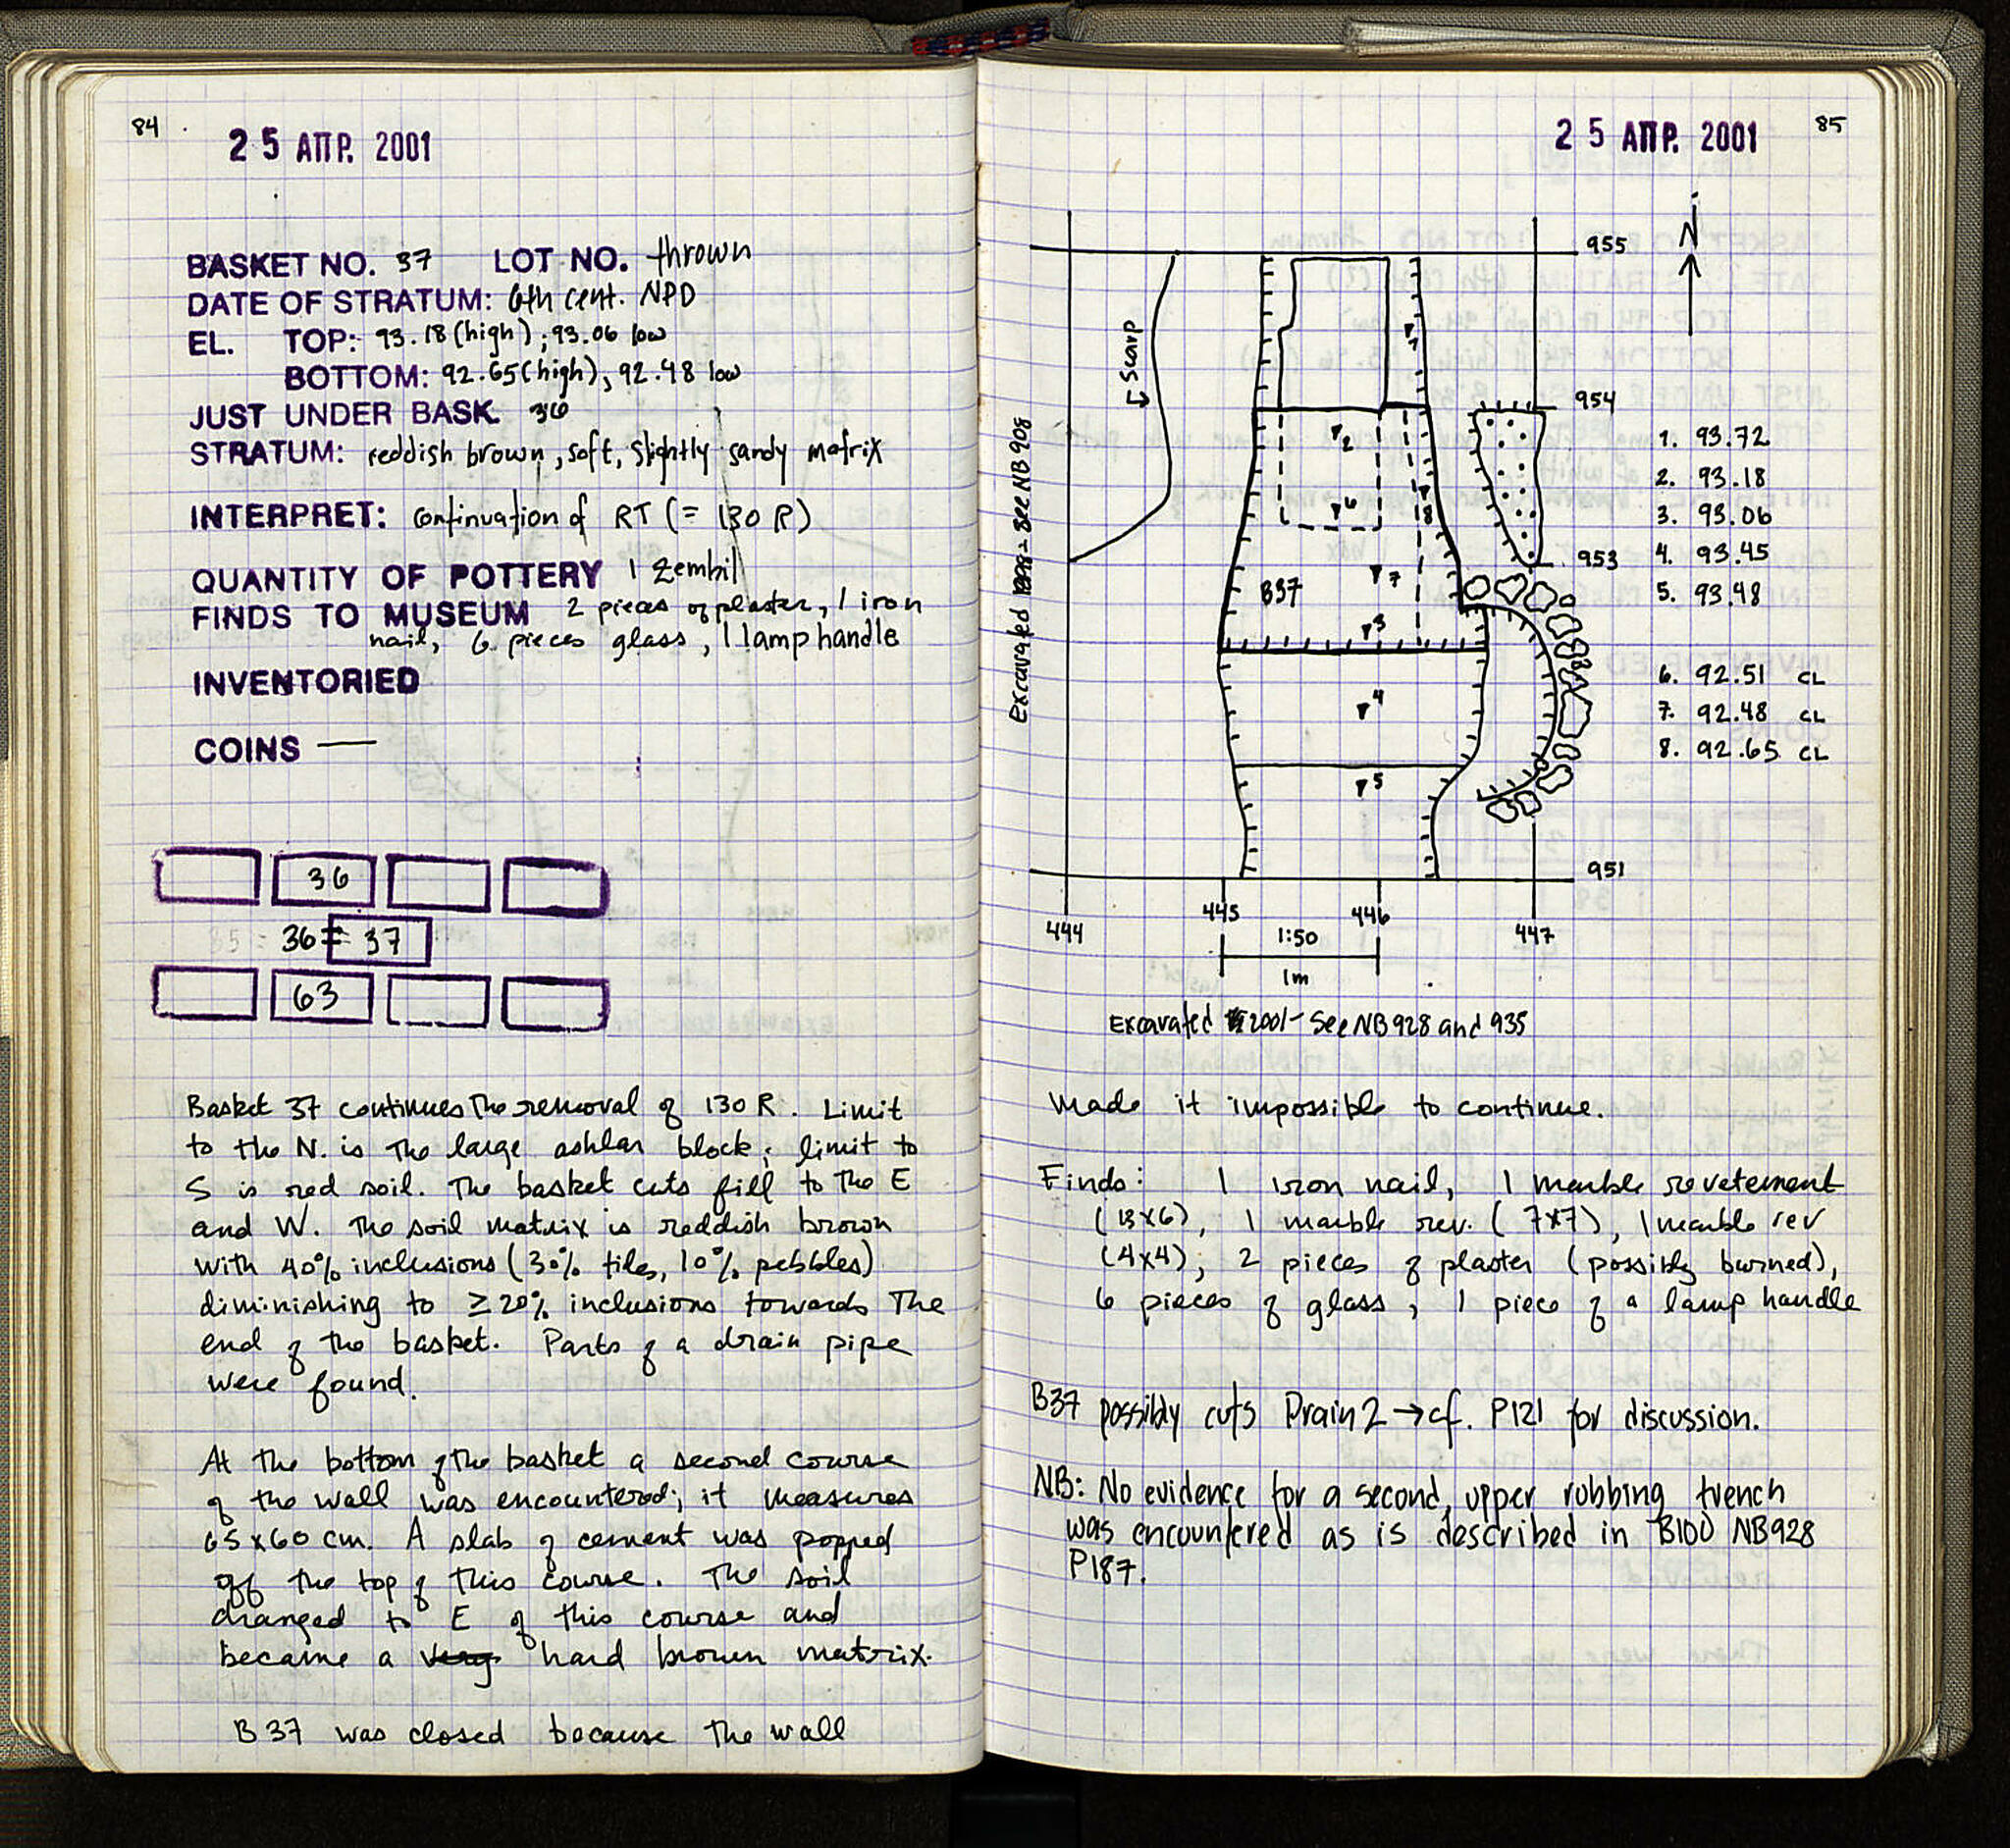 84
25 ΑΠΡ. 2001
BASKET NO. 37 LOT NO. thrown
DATE OF STRATUM: 6th cent. NPD
EL. TOP: 93.18 (high); 93.06 low
BOTTOM: 92.65 (high), 92.48 low
JUST UNDER BASK. 36
STRATUM: reddish brown, soft, slightly sandy matrix
INTERPRET: continuation of RT (= 130 R)
QUANTITY OF POTTERY 1 zembil
FINDS TO MUSEUM 2 pieces of plaster, 1 iron
nail, 6 pieces glass, 1 lamp handle
INVENTORIED
COINS —
36
36 = 37
63
Basket 37 continues the removal of 130 R. Limit
to the N. is the large ashlar block; limit to
S is red soil. The basket cuts fill to the E
and W. The soil matrix is reddish brown
with 40% inclusions (30% tiles, 10% pebbles)
diminishing to ≥ 20% inclusions towards the
end of the basket. Parts of a drain pipe
were found.
At the bottom of the basket a second course
of the wall was encountered; it measures
65 x 60 cm. A slab of cement was popped
off the top of this course. The soil
changed to E of this course and
became a very hard brown matrix.
B 37 was closed because the wall
25 ΑΠΡ. 2001
85
N
955
Scarp
1
954
2
6
8
953
7
B37
3
4
5
951
444
445
446
447
1:50
1m
Excavated - See NB 908
1. 93.72
2. 93.18
3. 93.06
4. 93.45
5. 93.48
6. 92.51 CL
7. 92.48 CL
8. 92.65 CL
Excavated 2001 - See NB 928 and 935
made it impossible to continue.
Finds: 1 iron nail, 1 marble revetement
(13x6), 1 marble rev. (7x7), 1 marble rev
(4x4), 2 pieces of plaster (possibly burned),
6 pieces of glass, 1 piece of a lamp handle
B37 possibly cuts Drain 2 → cf. P121 for discussion.
NB: No evidence for a second, upper robbing trench
was encountered as is described in B100 NB928
P187.